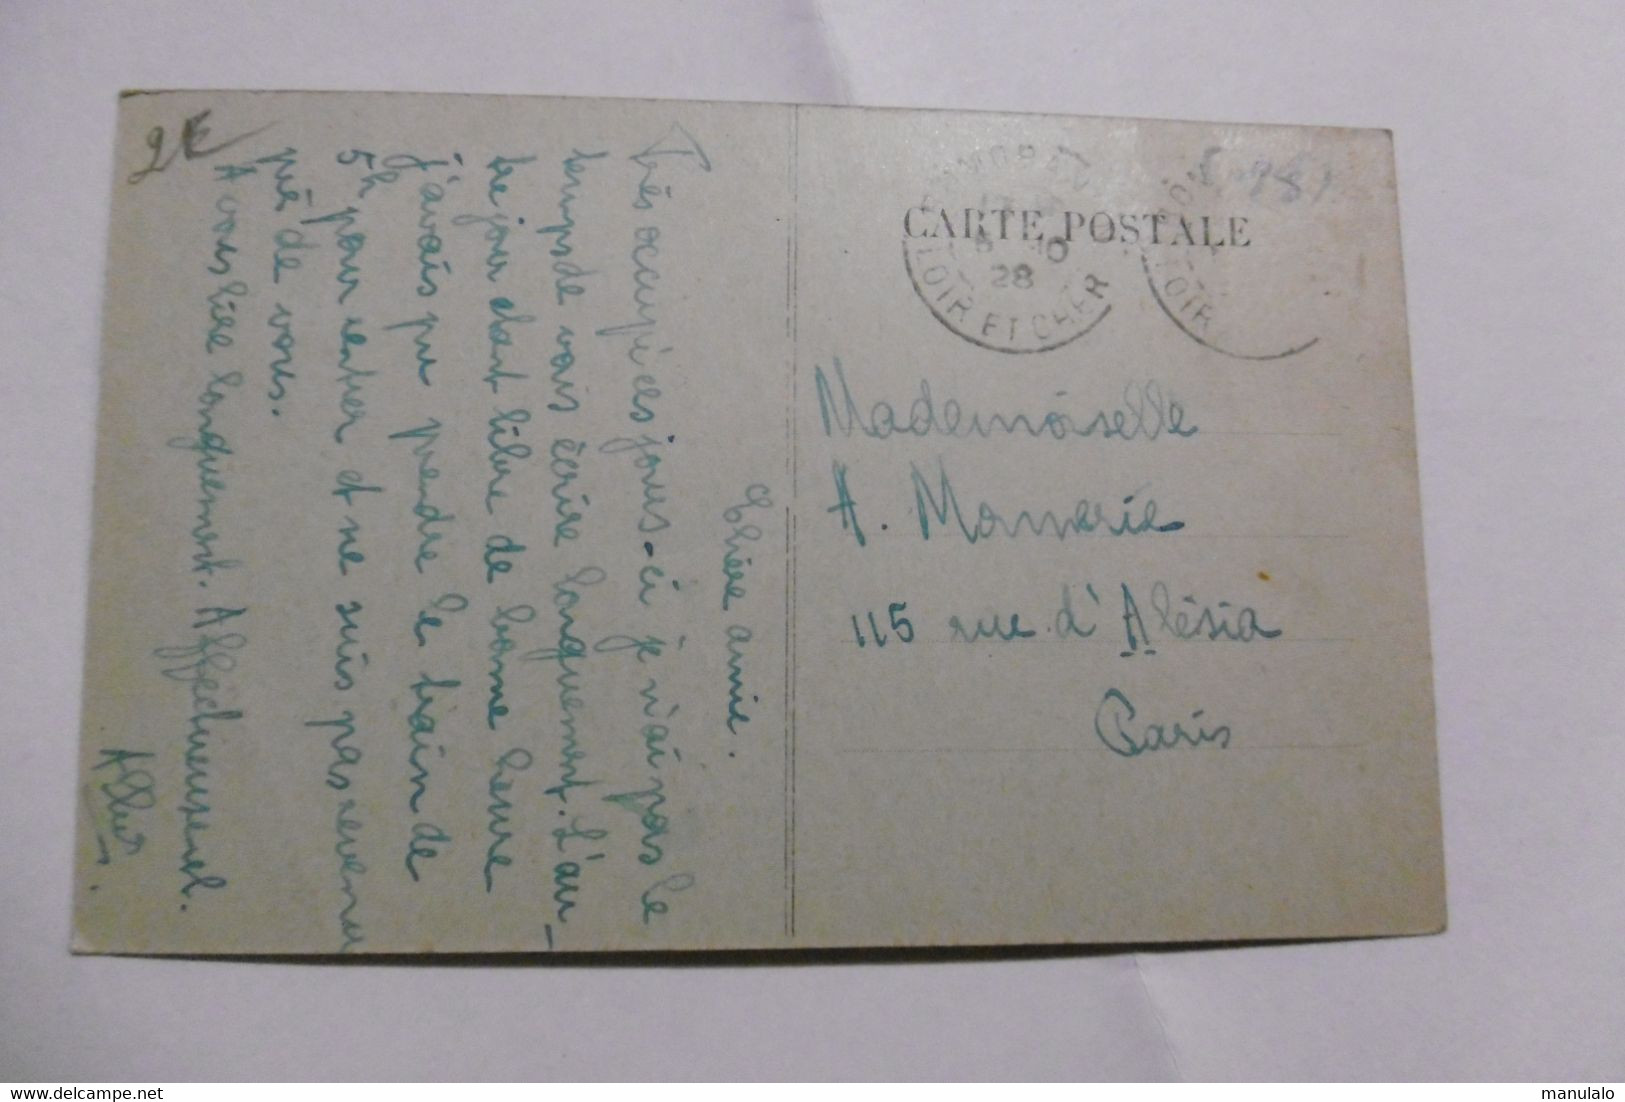 2 €
Chère amie.
Très occupée ces jours-ci je n'ai pas le
temps de vous écrire longuement. L'au-
tre jour étant libre de bonne heure
j'avais pu prendre le train de
5h pour rentrer et ne suis pas revenue
près de vous.
A vous lire longuement. Affectueusement.
CARTE POSTALE
28
LOIR ET CHER
LOIR
Mademoiselle
A. Momerie
115 rue d'Alésia
Paris
manulalo